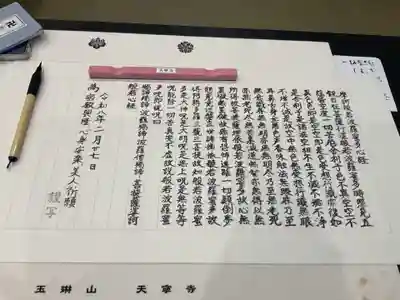 摩訶般若波羅蜜多心経
観自在菩薩行深般若波羅蜜多時照見五
蘊皆空度一切苦厄舎利子色不異空空不
異色色即是空空即是色受想行識亦復如
是舎利子是諸法空相不生不滅不垢不浄
不増不減是故空中無色無受想行識無眼
耳鼻舌身意無色声香味触法無眼界乃至
無意識界無無明亦無無明尽乃至無老死
亦無老死尽無苦集滅道無智亦無得以無
所得故菩提薩埵依般若波羅蜜多故心無
罣礙無罣礙故無有恐怖遠離一切顛倒夢
想究竟涅槃三世諸仏依般若波羅蜜多故
得阿耨多羅三藐三菩提故知般若波羅蜜
多是大神呪是大明呪是無上呪是無等等
呪能除一切苦真実不虚故説般若波羅蜜
多呪即説呪曰
羯諦羯諦波羅羯諦波羅僧羯諦菩提薩婆訶
般若心経
令和六年二月廿七日
為密教興隆心身安楽美人祈願
謹写
玉琳山 天寧寺